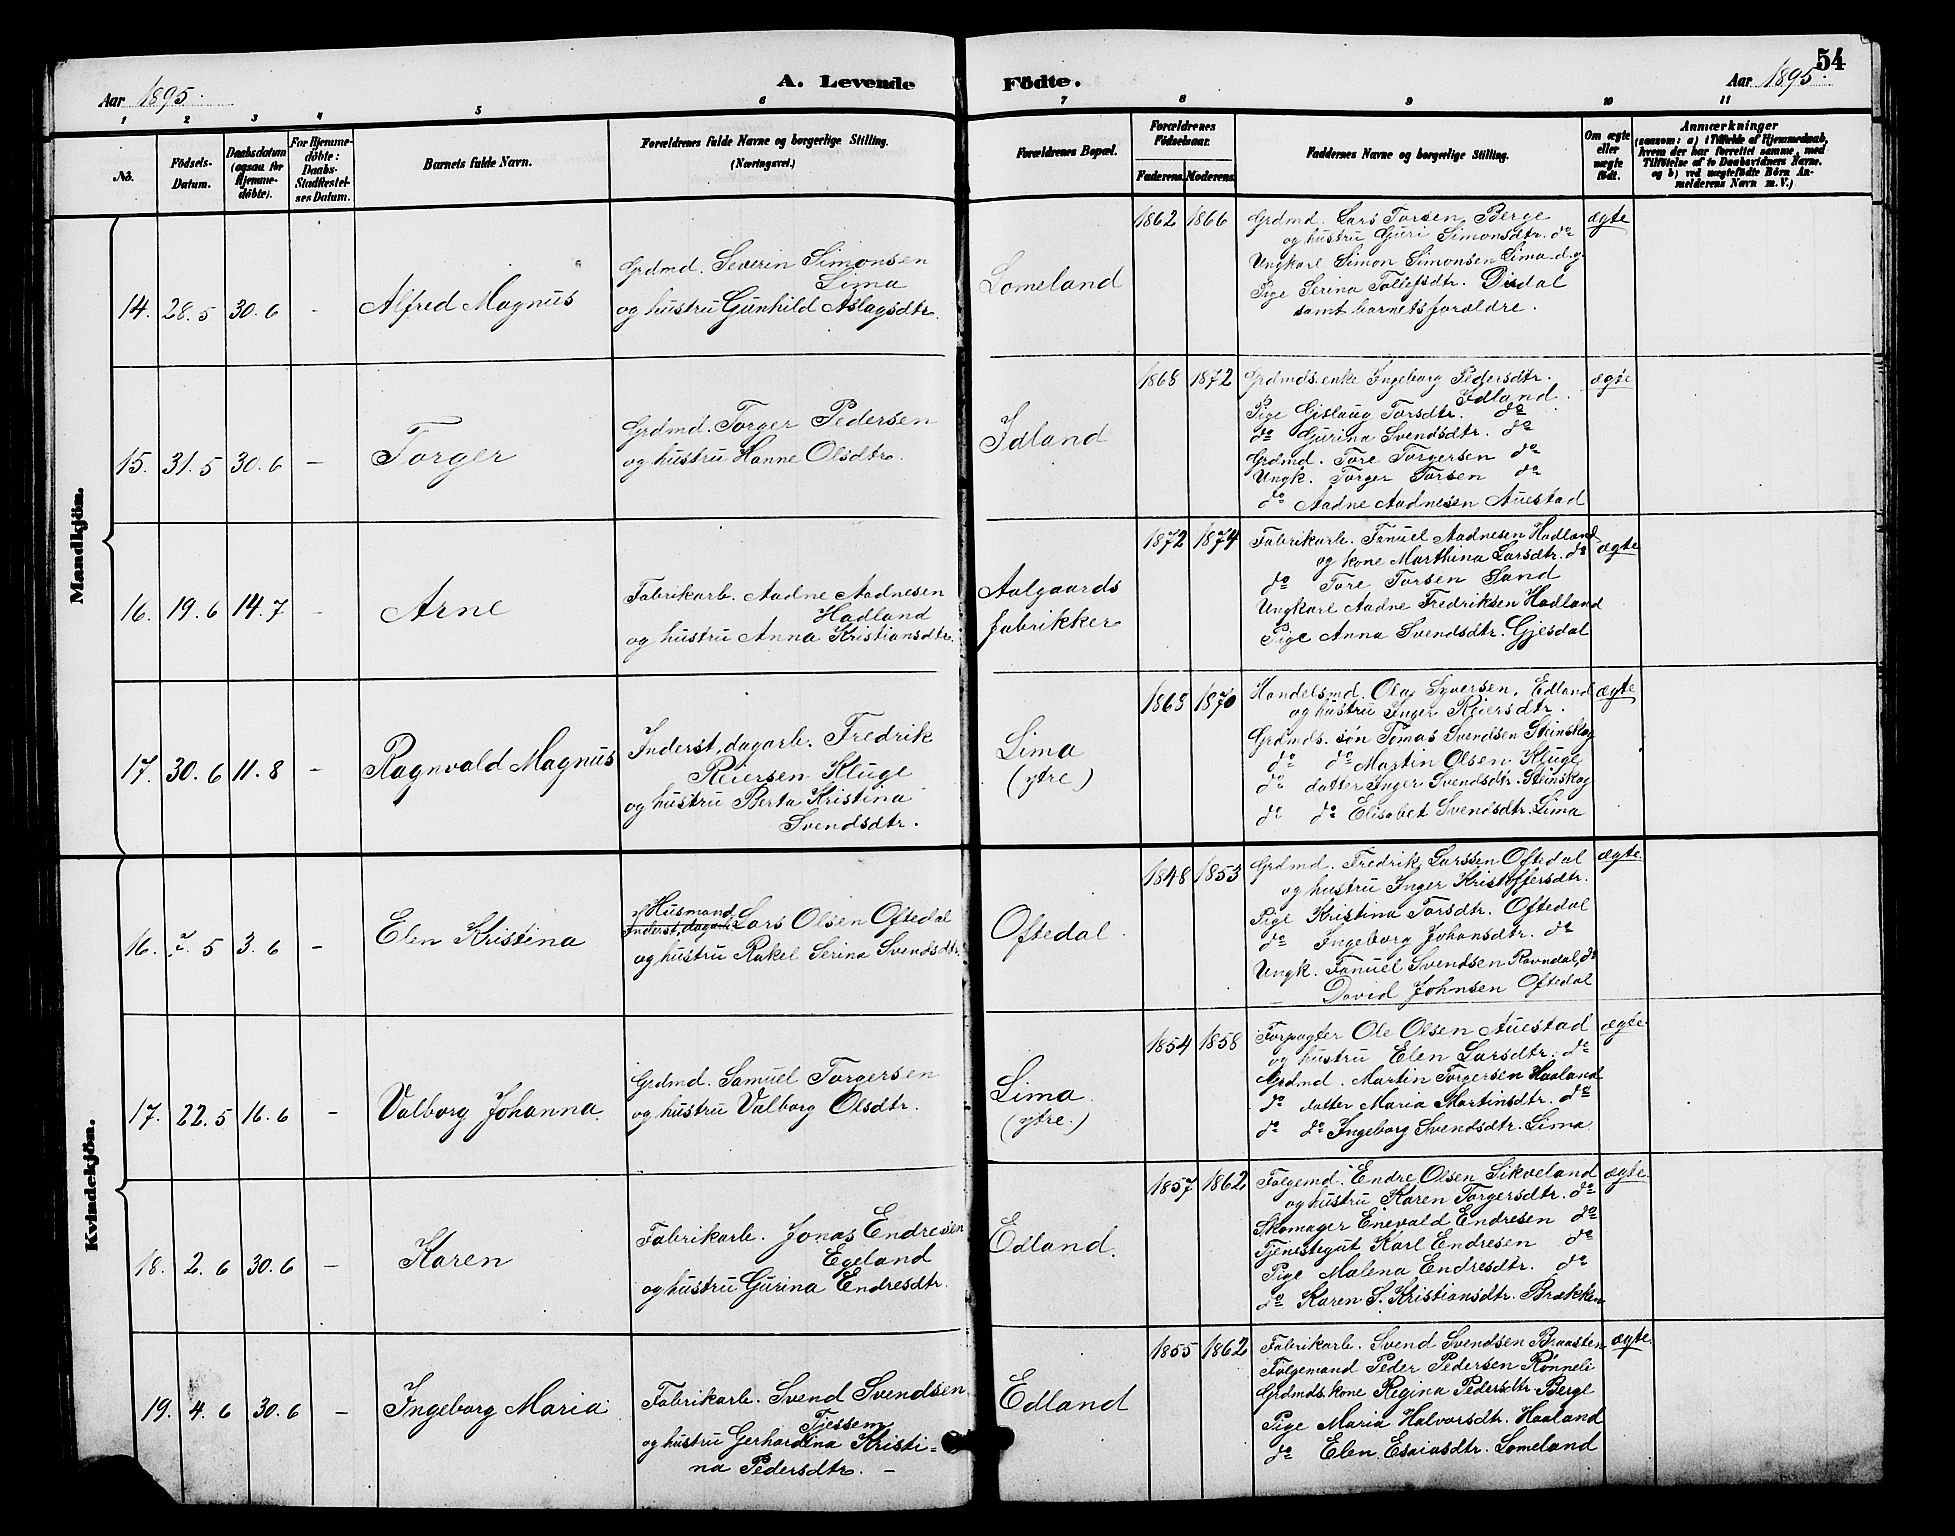 54
Aar 1895.
A. Levende
Födte.
Aar 1895.
1 2 3 4 5 6 7 8 9 10 11
No.
Födsels-Datum.
Daabsdatum (ogsaa for Hjemmedöbte).
For Hjemmedöbte: Daabs-Stadfæstelses Datum.
Barnets fulde Navn.
Forældrenes fulde Navne og borgerlige Stilling. (Næringsvei.)
Forældrenes Bopæl.
Forældrenes Födselsaar.
Faderens. Moderens.
Faddernes Navne og borgerlige Stilling.
Om ægte eller uægte født.
Anmærkninger
(saasom: a) i Tilfælde af Hjemmedaab, hvem der har forrettet samme, med Tilföielse af to Daabsvidners Navne, og b) ved uægtefödte Börn Anmelderens Navn m. V.)
Mandkjön.
14. 28.5 30.6 - Alfred Magnus
Grdmd. Severin Simonsen
Lima
og hustru Gunhild Aslagsdtr.
Lomeland
1862 1866
Grdmd. Lars Torsen Berge
og hustru Guri Simonsdtr. do
Ungkarl Simon Simonsen Lima
Pige Serina Tollefsdtr. Dirdal
samt barnets forældre.
ægte
15. 31.5 30.6 - Torger
Grdmd. Torger Pedersen
og hustru Hanne Olsdtr.
Idland
1868 1872
Grdmds. enke Ingeborg Pedersdtr.
Idland.
Pige Gislaug Torsdtr. do
do Gurina Svendsdtr. do
Grdmd. Tore Torgersen do
Ungk. Torger Torsen do
do Aadne Aadnesen Auestad
ægte
16. 19.6 14.7 - Arne
Fabrikarb. Aadne Aadnesen
Hadland
og hustru Anna Kristiansdtr.
Aalgaards
fabrikker
1872 1874
Fabrikarb. Fanuel Aadnesen Hadland
og kone Marthina Larsdtr. do
do Tore Torsen Sand
Ungkarl Aadne Fredriksen Hadland
Pige Anna Svendsdtr. Gjesdal
ægte
17. 30.6 11.8 - Ragnvald Magnus
Inderst, dagarb. Fredrik
Reiersen Kluge
og hustru Berta Kristina
Svendsdtr.
Lima
(ytre.)
1863 1870
Handelsmd. Olaj Syversen, Edland
og hustru Inger Reiersdtr.
Grdmds. søn Tomas Svendsen Steinskog
do do Martin Olsen Kluge
do datter Inger Svendsdtr. Steinskog
do do Elisabet Svendsdtr. Lima
ægte
Kvindekjön.
16. 7.5 3.6 - Elen Kristina
Husmand
Inderst, dagarb. Lars Olsen Oftedal
og hustru Rakel Serina Svendsdtr.
Oftedal.
1848 1853
Grdmd. Fredrik Larssen Oftedal
og hustru Inger Kristoffersdtr.
Pige Kristina Torsdtr. Oftedal
do Ingeborg Johansdtr. do
Ungk. Fanuel Svendsen Ravndal, do
David Johnsen Oftedal
ægte.
17. 22.5 16.6 - Valborg Johanna
Grdmd. Samuel Torgersen
og hustru Valborg Olsdtr.
Lima.
(ytre.)
1854 1858
Forpagter Ole Olsen Auestad
og hustru Elen Larsdtr. do
Grdmd. Martin Torgersen Haaland
do datter Maria Martinsdtr. do
do do Ingeborg Svendsdtr. Lima
ægte
18. 2.6 30.6 - Karen
Fabrikarb. Jonas Endresen
Egeland
og hustru Gurina Endresdtr.
Edland.
1857 1862
Følgemd. Endre Olsen Sikveland
og hustru Karen Torgersdtr. do
Skomager Enevald Endresen do
Tjenestegut Karl Endresen do
Pige Malena Endresdtr. do
do Karen S. Kristiansdtr. Brækken
ægte
19. 4.6 30.6 - Ingeborg Maria
Fabrikarb. Svend Svendsen
Tjessem
og hustru Gerhardina Kristi=
na Pedersdtr. -
Edland
1855 1862
Fabrikarb. Svend Svendsen Braasten
Følgemand Peder Pedersen Rønneli
Grdmds. kone Regina Pedersdtr Berge
Pige Maria Halvorsdtr. Haaland
do Elen Esaiasdtr. Lomeland
ægte.